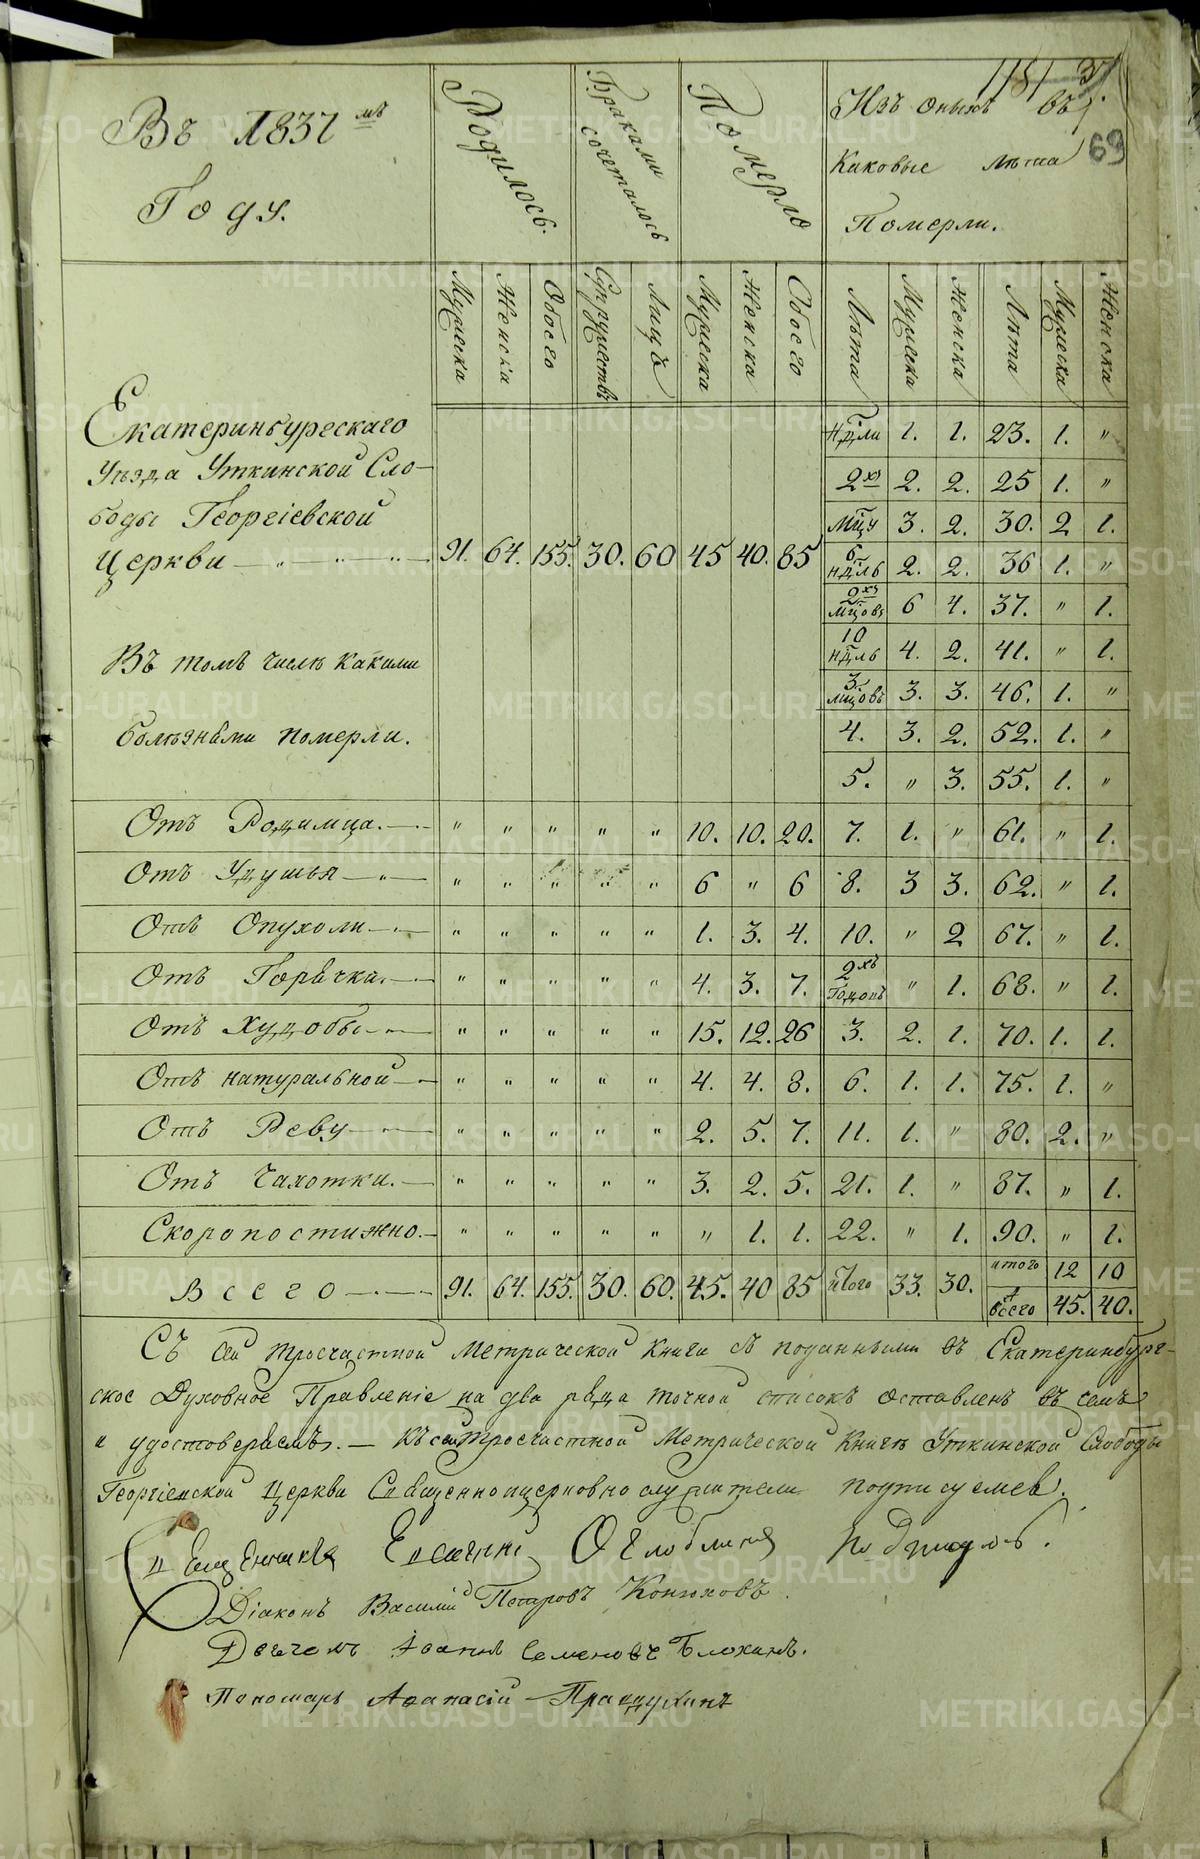 Въ 1837 мъ
Году.
Родилось.
Браками сочеталось
Померло
Изъ оныхъ въ
Каковые лѣта
Померли.
69
Мужеска Женска Обоего Супружествъ Лицъ Мужеска Женска Обоего Лѣта Мужеска Женска Лѣта Мужеска Женска
Екатеринбургскаго
уѣзда Уткинской Сло-
боды Георгіевской
Церкви 91. 64. 155. 30. 60 45 40. 85
Ндли 1. 1. 23. 1. „
2хъ 2. 2. 25 1. „
Мцу 3. 2. 30. 2 1.
6 ндль 2. 2. 36 1. „
2хъ мцовъ 6 4. 37. „ 1.
10 ндль 4. 2. 41. „ 1.
3. мцовъ 3. 3. 46. 1. „
4. 3. 2. 52. 1. „
5. „ 3. 55. 1. „
Въ томъ числѣ какими
болѣзньми померли.
Отъ Родимца. „ „ „ „ „ 10. 10. 20. 7. 1. „ 61. „ 1.
Отъ Удушья „ „ „ „ „ 6 „ 6 8. 3 3. 62. „ 1.
Отъ Опухоли „ „ „ „ „ 1. 3. 4. 10. „ 2 67. „ 1.
Отъ Горячка. „ „ „ „ „ 4. 3. 7. 2хъ Годовъ „ 1. 68. „ 1.
Отъ Худобы „ „ „ „ „ 15. 12. 26 3. 2. 1. 70. 1. 1.
Отъ натуральной „ „ „ „ „ 4. 4. 8. 6. 1. 1. 75. 1. „
Отъ Реву „ „ „ „ „ 2. 5. 7. 11. 1. „ 80. 2. „
Отъ Чахотки. „ „ „ „ „ 3. 2. 5. 21. 1. „ 87. „ 1.
Скоропостижно. „ „ „ „ „ „ 1. 1. 22. „ 1. 90. „ 1.
Всего 91. 64. 155. 30. 60. 45. 40 85 итого 33. 30. итого 12 10
всего 45. 40.
Съ сей троечастной Метрической книги съ поданными въ Екатеринбург-
ское Духовное Правленіе на два ряда точной списокъ оставленъ въ семъ
и удостоверяемъ. — Къ сей троечастной Метрической Книгѣ Уткинской Слободы
Георгіевской Церкви Священноцерковнослужители подписуемся.
Священникъ Оглоблинъ
Діаконъ Василій Петровъ Конюховъ.
Дьячекъ Іоаннъ Семеновъ Блохинъ.
Пономарь Аѳанасій
METRIKI.GASO-URAL.RU